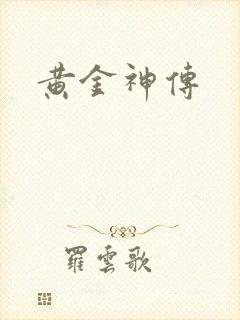 黃金神傳
羅雲歌